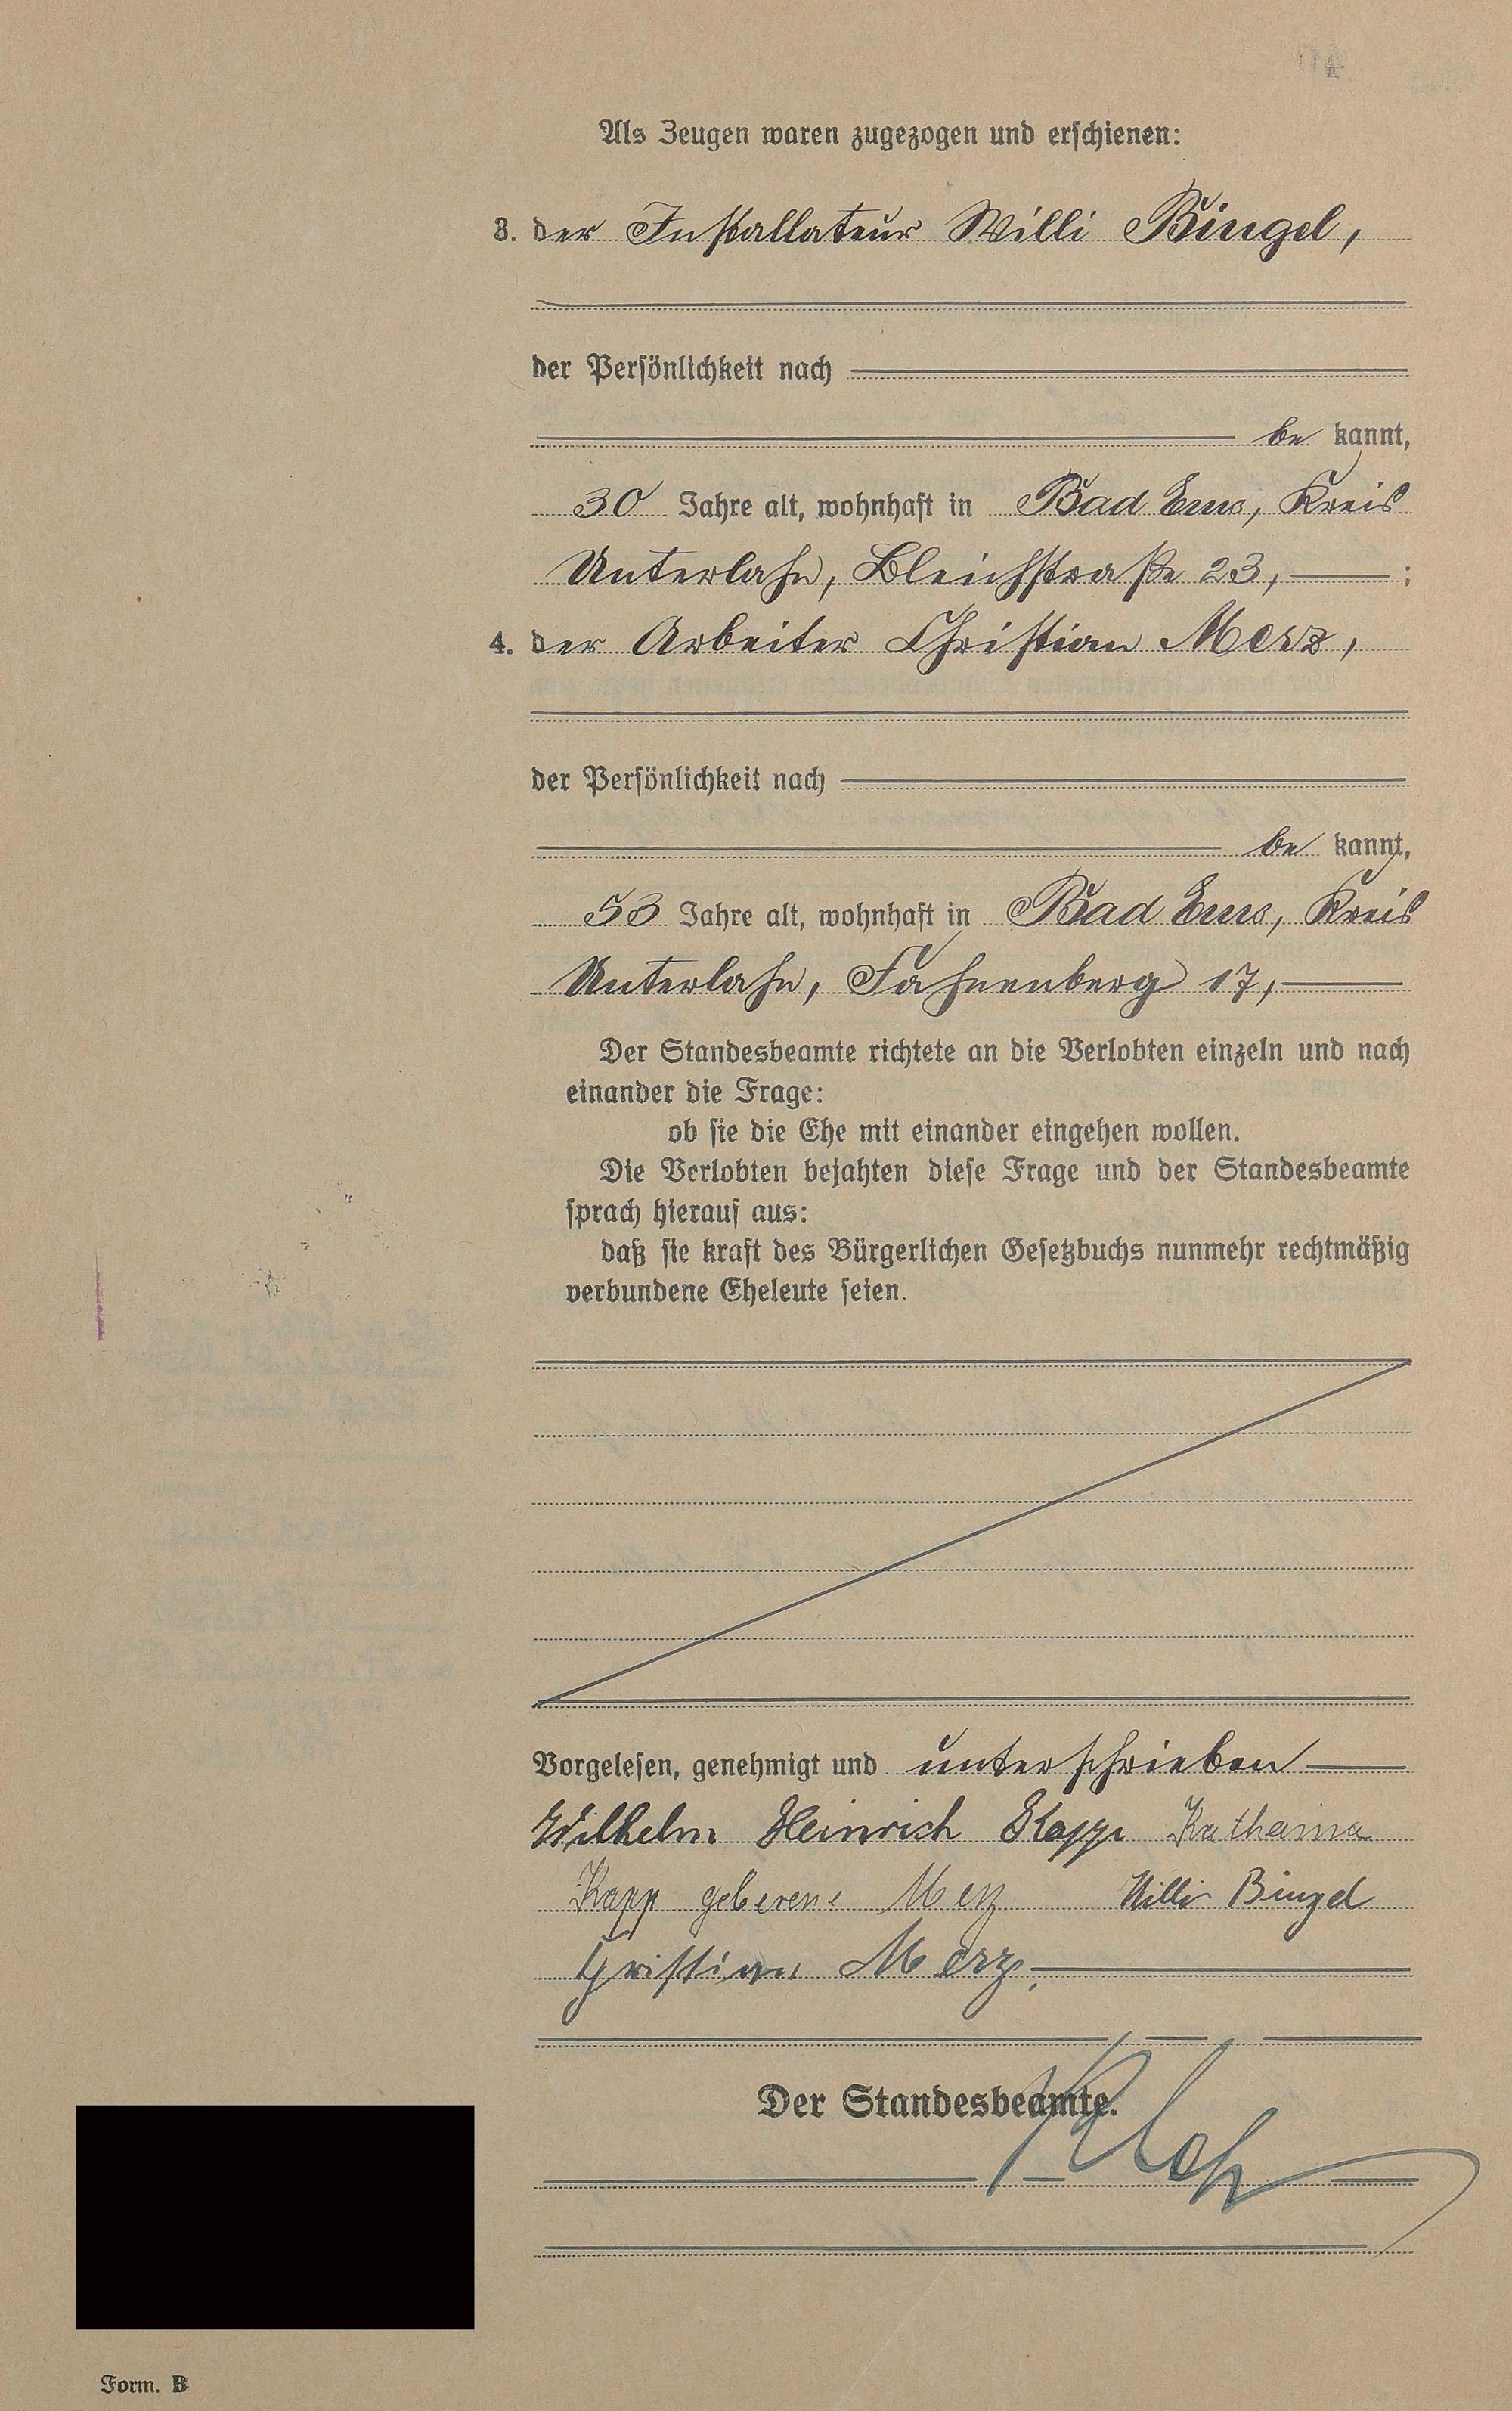 Als Zeugen waren zugezogen und erschienen:
3. der Installateur Willi Bingel,
der Persönlichkeit nach
be kannt,
30 Jahre alt, wohnhaft in Bad Ems, Kreis
Unterlahn, Bleichstraße 23, ;
4. der Arbeiter Christian Merz,
der Persönlichkeit nach
be kannt,
53 Jahre alt, wohnhaft in Bad Ems, Kreis
Unterlahn, Fahnenberg 17,
Der Standesbeamte richtete an die Verlobten einzeln und nach
einander die Frage:
ob sie die Ehe mit einander eingehen wollen.
Die Verlobten bejahten diese Frage und der Standesbeamte
sprach hierauf aus:
daß sie kraft des Bürgerlichen Gesetzbuchs nunmehr rechtmäßig
verbundene Eheleute seien.
Vorgelesen, genehmigt und unterschrieben
Wilhelm Heinrich Kapp Katharina
Kapp geborene Merz Willi Bingel
Christian Merz.
Der Standesbeamte.
Form. B